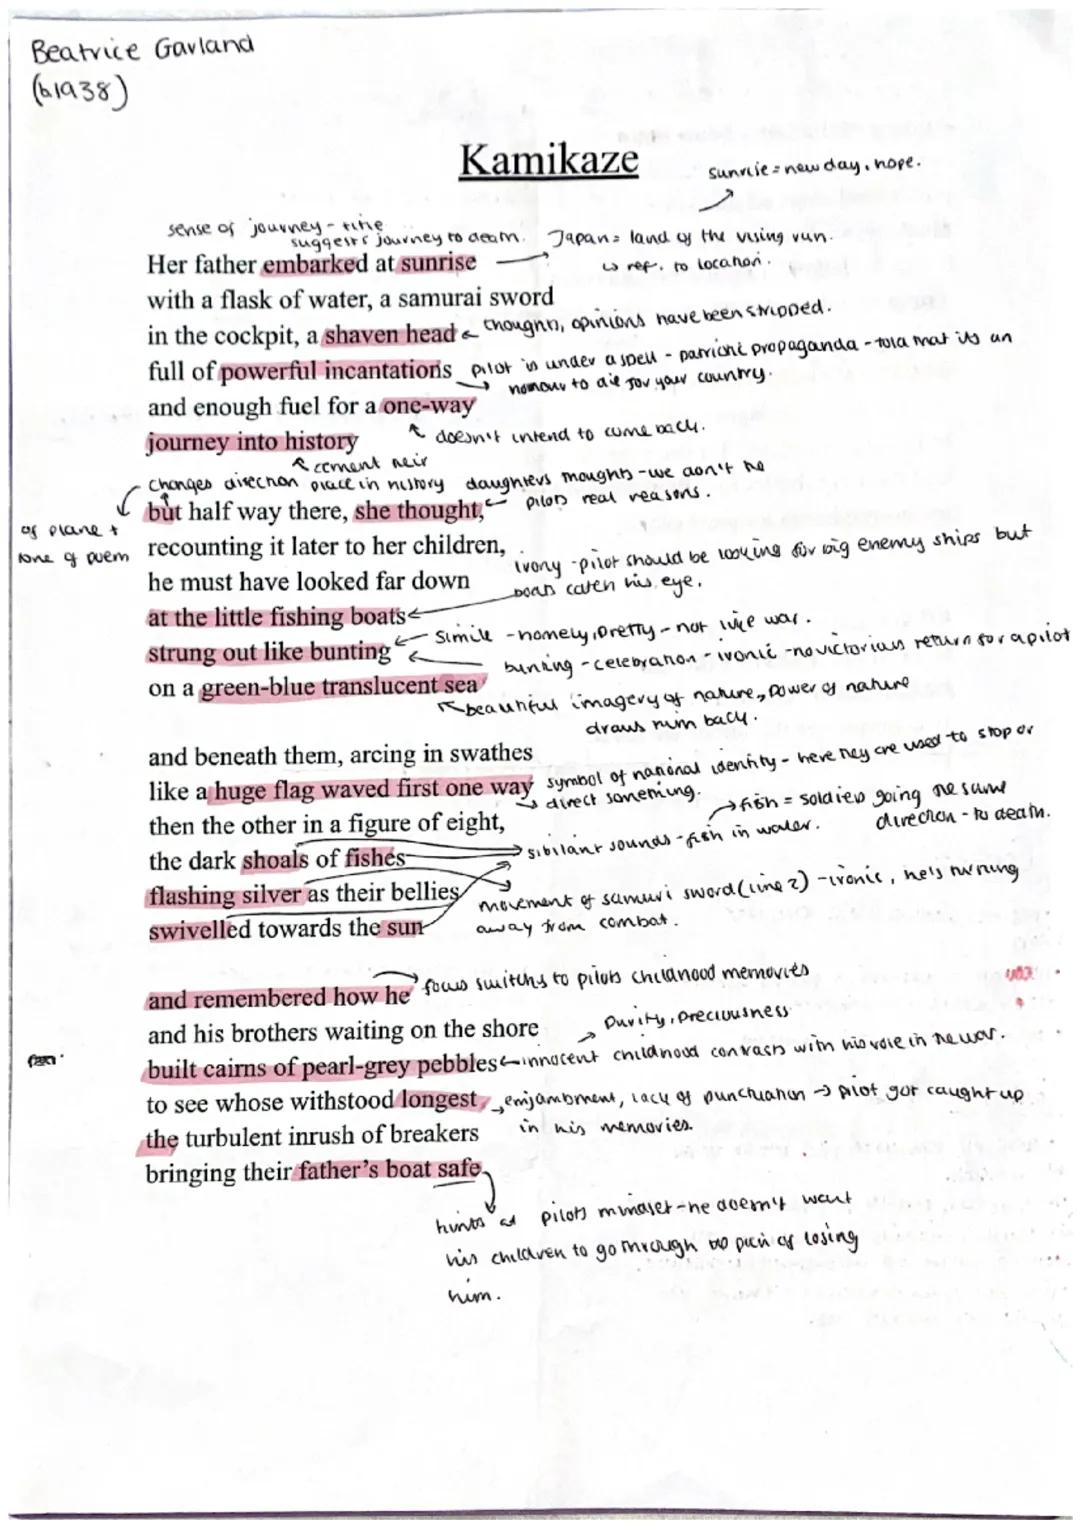 Beatrice Garland
(b1938)
Kamikaze
sunrise = new day, hope.
sense of journey -
suggests journey to death.
Japan = land of the rising sun.
↳ ref. to location.
Her father embarked at sunrise
with a flask of water, a samurai sword
in the cockpit, a shaven head
thoughts, opinions have been stripped.
full of powerful incantations
pilot is under a spell - patriotic propaganda - told that its an
honour to die for your country.
and enough fuel for a one-way
journey into history
doesn't intend to come back.
cement their
place in history
changes direction
of plane +
tone of poem
daughters thoughts - we don't
pilots real reasons.
but half way there, she thought,
recounting it later to her children,
he must have looked far down
irony - pilot should be looking for big enemy ships but
boats catch his eye.
at the little fishing boats
strung out like bunting
simile - homely, pretty - not like war.
bunting - celebration - ironic - no victorious return for a pilot
on a green-blue translucent sea
beautiful imagery of nature, power of nature
draws him back.
and beneath them, arcing in swathes
like a huge flag waved first one way
symbol of national identity - here they are used to stop or
direct something.
then the other in a figure of eight,
fish = soldiers going the same
direction - to death.
the dark shoals of fishes
sibilant sounds - fish in water.
flashing silver as their bellies
swivelled towards the sun
movement of samuri sword (line 2) - ironic, he's turning
away from combat.
and remembered how he
focus switchs to pilots childhood memories
and his brothers waiting on the shore
Purity, preciousness
built cairns of pearl-grey pebbles
innocent childhood contrasts with his role in the war.
to see whose withstood longest
enjambment, lack of punctuation → pilot got caught up
in his memories.
the turbulent inrush of breakers
bringing their father's boat safe
hints at pilots mindset - he doesn't want
his children to go through the pain of losing
him.